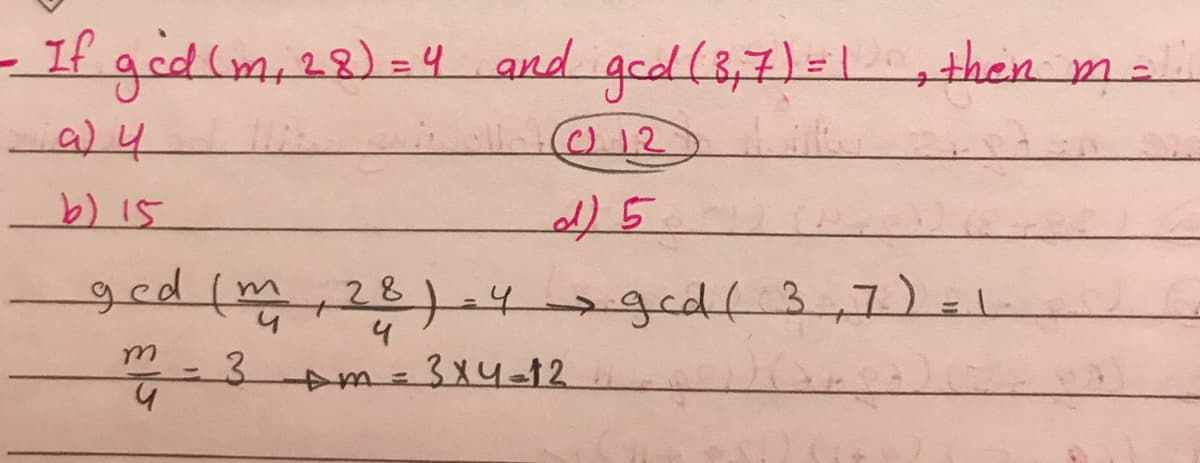 - If gcd(m, 28) = 4 and gcd(3,7) = 1 , then m =
a) 4 c) 12
b) 15 d) 5
gcd (m/4 , 28/4) = 4 → gcd( 3 ,7) = 1
m/4 = 3 → m = 3 x 4 = 12